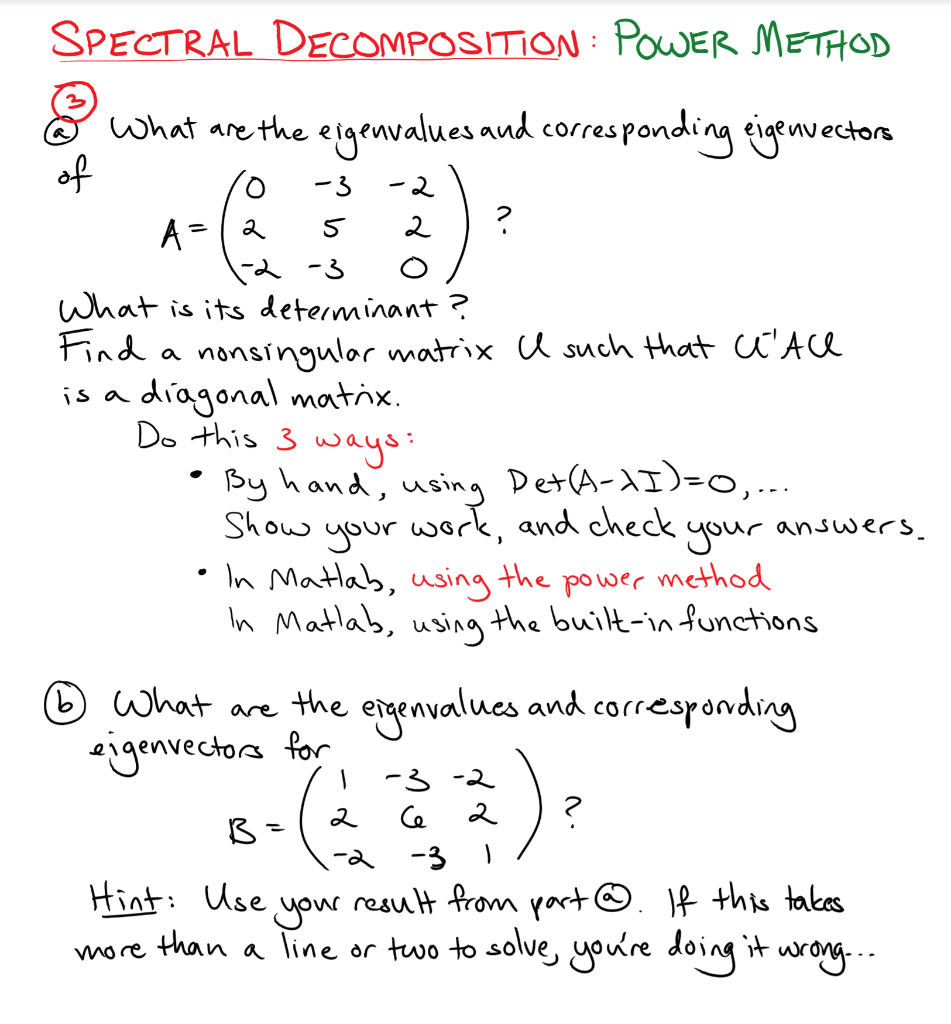 SPECTRAL DECOMPOSITION: POWER METHOD
③
ⓐ What are the eigenvalues and corresponding eigenvectors
of
A = ( 0 -3 -2
2 5 2
-2 -3 0 ) ?
What is its determinant?
Find a nonsingular matrix U such that U⁻¹AU
is a diagonal matrix.
Do this 3 ways:
• By hand, using Det(A-λI)=0,...
Show your work, and check your answers.
• In Matlab, using the power method
In Matlab, using the built-in functions
ⓑ What are the eigenvalues and corresponding
eigenvectors for
B = ( 1 -3 -2
2 6 2
-2 -3 1 ) ?
Hint: Use your result from part ⓐ. If this takes
more than a line or two to solve, you're doing it wrong...